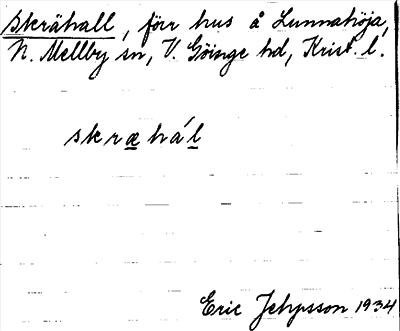 Skrähall, förr hus å Lunnahöja,
N. Mellby sn, V. Göinge hd, Krist. l.
skræhál
Eric Jehpsson 1934